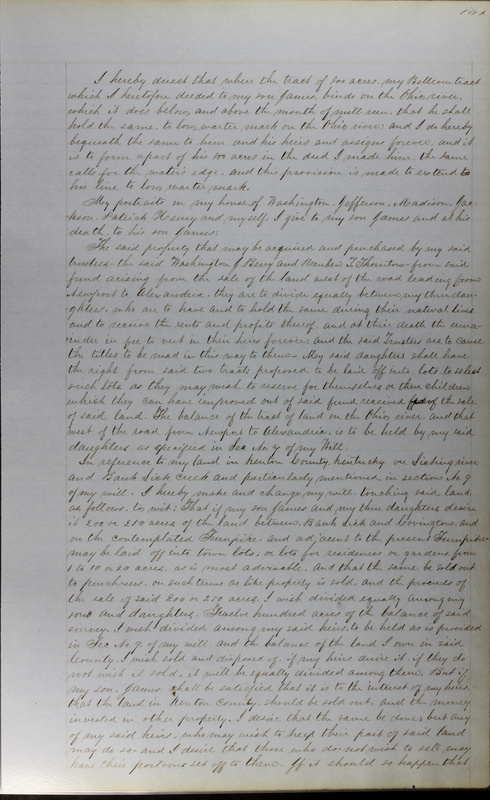 I hereby direct that where the tract of 200 acres, my Bellevue tract
which I heretofore deeded to my son James, binds on the Ohio river,
which it does below, and above the mouth of mill run, that he shall
hold the same, to low, warter mark on the Ohio river: and I do hereby
bequeath the same to him and his heirs and assigns forever, and it
is to form a part of his 100 acres in the deed I made him, the same
calls for the water's edge, and this provision is made to extend to
his line to low, warter mark.
My portraits in my house of Washington, Jefferson, Madison, Jac-
kson, Patrick Henry and myself, I give to my son James and at his
death, to his son James;
The said property that may be acquired and purchased by my said
trustees the said Washington J. Berry and Reuben T. Thornton from said
fund arising from the sale of the land west of the road leading from
Newport to Alexandria, they are to divide equally between my three dau-
ghters, who are to have and to hold the same during their natural lives
and to receive the rents and profits thereof, and at their death the rema-
inder in fee to vest in their heirs forever: and the said Trustees are to cause
the titles to be mad in this way to them - My said daughters shall have
the right from said two tracts proposed to be laid off into lots to select
such lots as they may wish to reserve for themselves or their children
which they can have improved out of said fund received of the sale
of said land. The balance of the tract of land on the Ohio river and that
west of the road from Newport to Alexandria, is to be held by my said
daughters as specified in Sec No. 7 of my Will.
In reference to my land in Kenton County, Kentucky, on Licking river
and Bank Lick Creek and particularly mentioned in section No. 9
of my will. I hereby make and change my will: touching said land,
as follows, to wit: That if my son James and my three daughters desire
it 200 or 250 acres of the land between Bank Lick and Covington, and
on the contemplated Turnpike and adjacent to the present Turnpike
may be laid off into town lots, or lots for residences or gardens, from
1 to 10 or 20 acres, as is most advisable, and that the same be sold out
to purchasers, on such terms as like property is sold, and the proceeds of
the sale of said 200 or 250 acres, I wish divided equally among my
son and daughters. Twelve hundred acres of the balance of said
survey, I wish divided among my said heirs, to be held as is provided
in Sec No. 9, of my will, and the balance of the land I own in said
County, I wish sold and disposed of, if my heirs desire it, if they do
not wish it sold, it will be equally divided among them. But if
my son, James, shall be satisfied that it is to the interest of my heirs
that the land in Kenton County, should be sold out, and the money
invested in other property, I desire that the same be done, but any
of my said heirs, who may wish to keep their part of said land
may do so and I desire that those who do not wish to sell may
have their portions set off to them. If it should so happen that